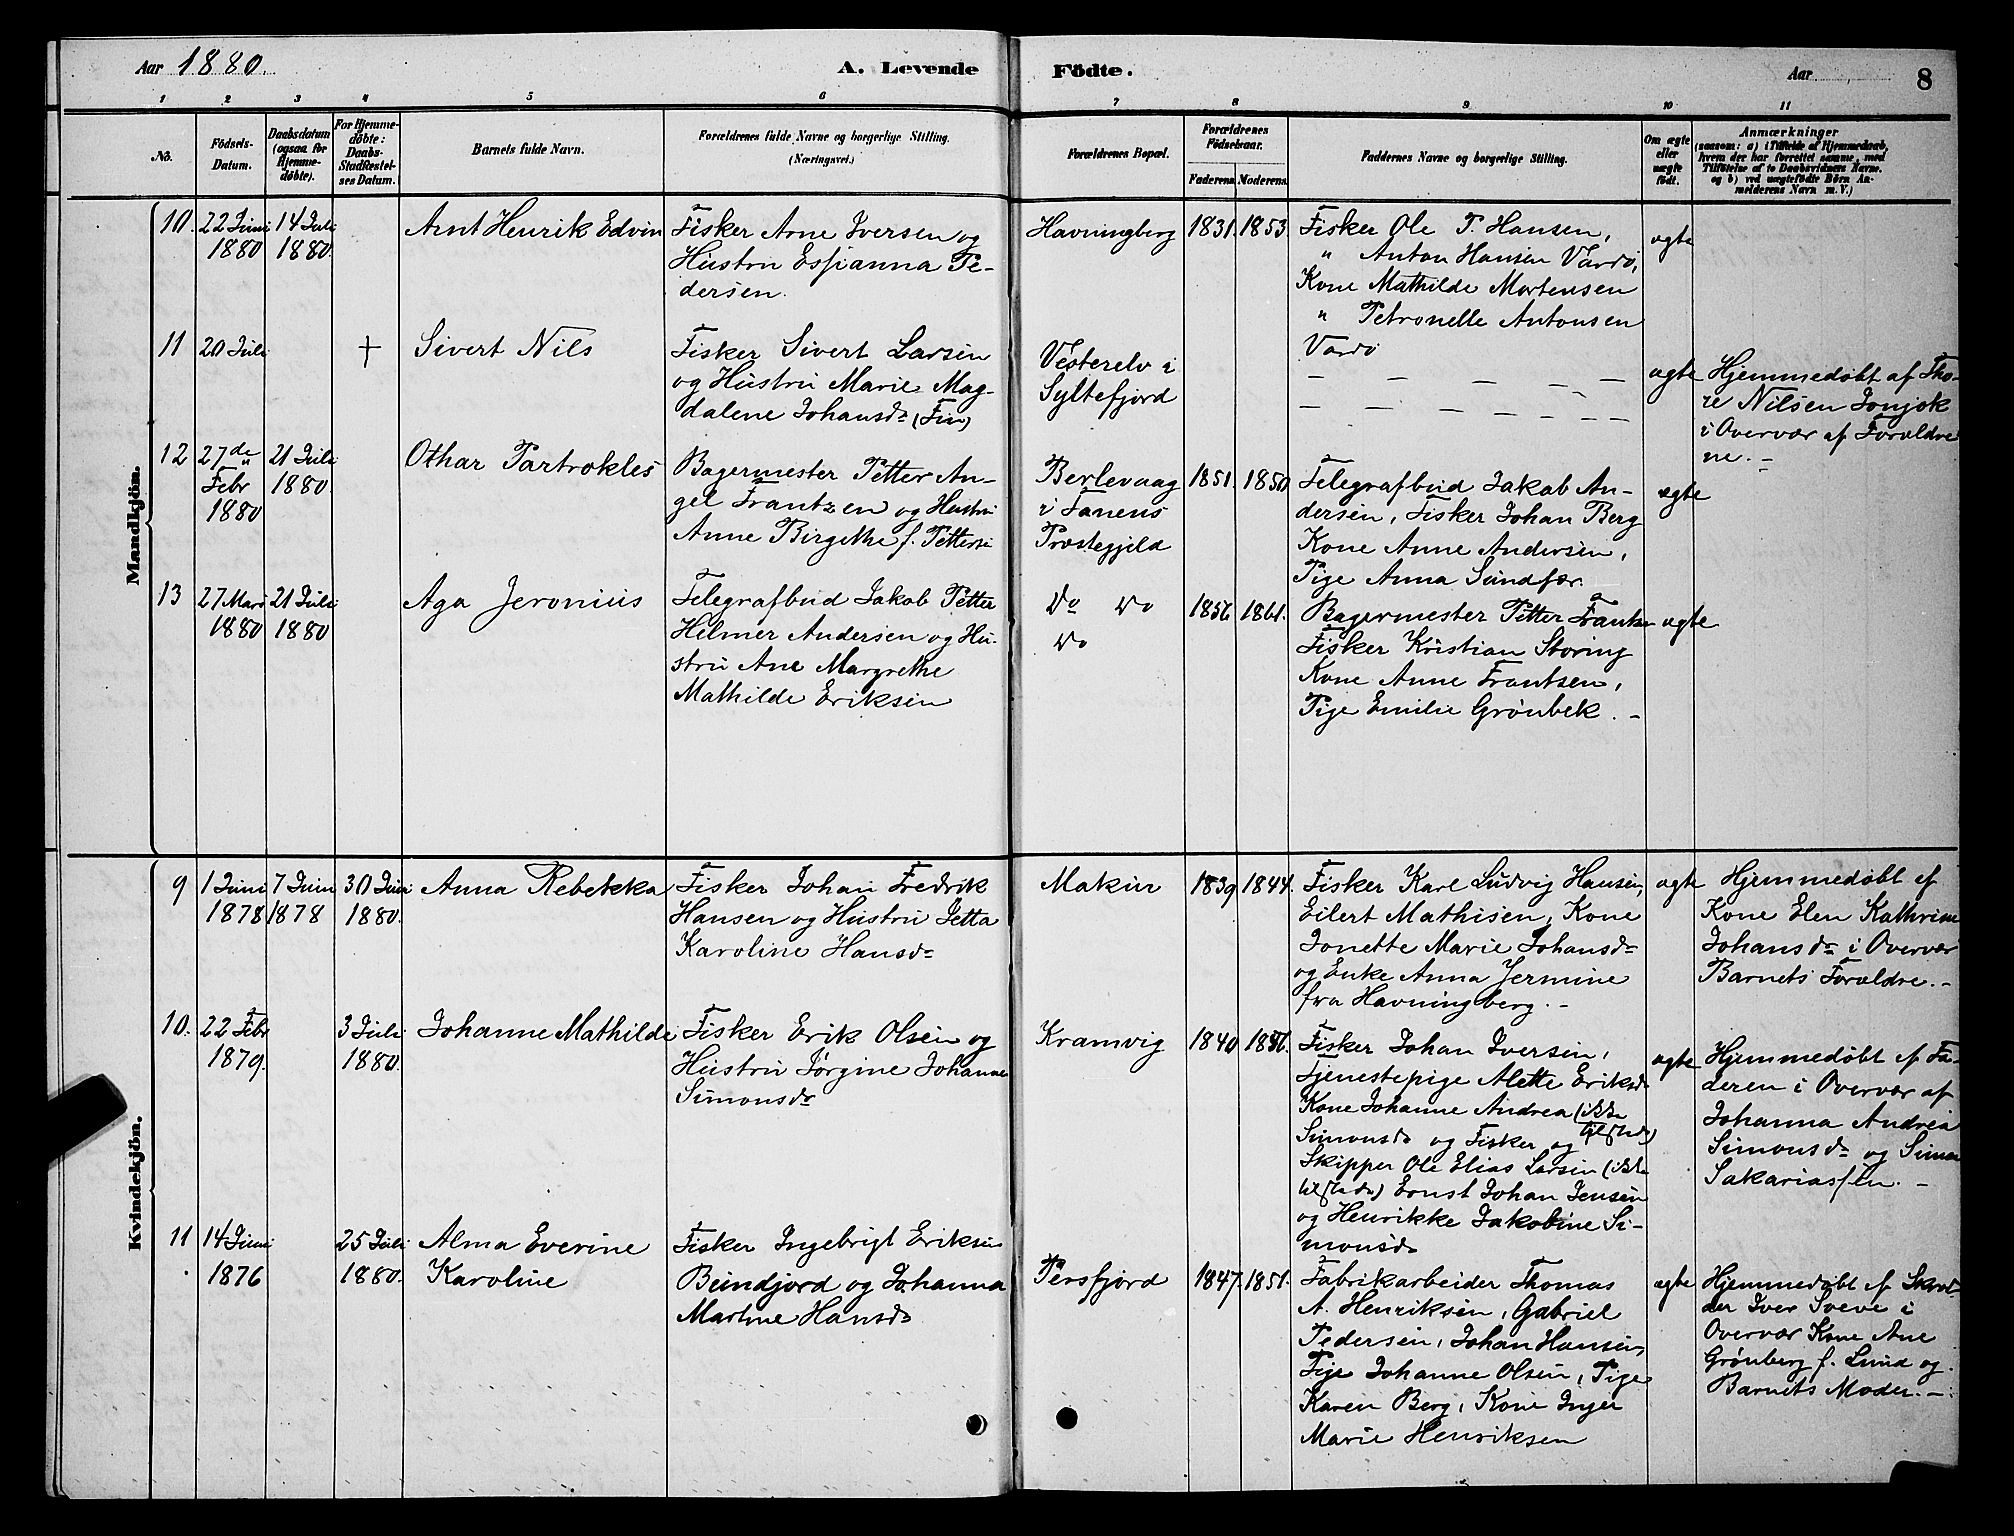 Aar 1880.
A. Levende
Födte.
Aar
8
1 2 3 4 5 6 7 8 9 10 11
No.
Födsels-
Datum.
Daabsdatum
(ogsaa for
Hjemme-
döbte).
For Hjemme-
döbte:
Daabs-
Stadfæstel-
ses Datum.
Barnets fulde Navn.
Forældrenes fulde Navne og borgerlige Stilling.
(Næringsvei.)
Forældrenes Bopæl.
Forældrenes
Födselsaar.
Faderens. Moderens.
Faddernes Navne og borgerlige Stilling.
Om ægte
eller
uægte
födt.
Anmærkninger
(saasom: a) i Tilfælde af Hjemmedaab,
hvem der har forrettet samme, med
Tilföielse af to Daabsvidners Navne.
og b) ved uægtefödte Börn An-
melderens Navn m. V.)
Mandkjön.
10. 22 Juni
1880
14 Juli
1880.
Arnt Henrik Edvin
Fisker Arne Iversen og
Hustru Essianna Pe-
dersen.
Havningberg
1831. 1853.
Fisker Ole P. Hansen,
" Anton Hansen Vardö,
Kone Mathilde Mortensen
" Petronelle Antonsen
Vardö
ægte
11 20 Juli
+
Sivert Nils
Fisker Sivert Larsen
og Hustru Marie Mag-
dalene Johansdr (Fin)
Vesterelv i
Syltefjord
— — — — —
— — — — — —
ægte
Hjemmedøbt af Tho-
re Nilsen Jonjok
i Overvær af Foreldre
ne. –
12 27de
Febr
1880
21 Juli
1880.
Othar Partrokles
Bagermester Petter An-
gel Frantzen og Hustru
Anne Birgethe f. Petterse
Berlevaag
i Tanens
Præstegjeld
1851. 1850
Telegrafbud Jakob An-
dersen, Fisker Johan Berg
Kone Anne Andersen,
Pige Anna Sundfær.
ægte
13 27 Mars
1880
21 Juli
1880
Aga Jeronius
Telegrafbud Jakob Petter
Helmer Andersen og Hu-
stru Ane Margrethe
Mathilde Eriksen
Do Do
Do
1856 1861.
Bagermester Petter Frantzen
Fisker Kristian Storing
Kone Anne Frantsen,
Pige Emilie Grönbek. –
ægte
Kvindekjön.
9 1 Juni
1878
7 Juni
1878
30 Juni
1880.
Anna Rebekka
Fisker Johan Fredrik
Hansen og Hustru Jetta
Karoline Hansdr
Makur
1839 1844.
Fisker Karl Ludvig Hansen,
Eilert Mathisen, Kone
Jonette Marie Johansdr
og Enke Anna Jermine
fra Havningberg. –
ægte
Hjemmedøbt af
Kone Elen Kathrine
Johansdr i Overvær
Barnets Foreldre. –
10. 22 Febr
1879.
3 Juli
1880.
Johanne Mathilde
Fisker Erik Olsen og
Hustru Jörgine Johanne
Simonsdr
Kramvig
1840
Fisker Johan Iversen,
Tjenestepige Alette Eriksdr
Kone Johanne Andrea (ikke
Simonsdr og Fisker og tilstede)
Skipper Ole Elias Larsen (ikke
tilstede) Ernst Johan Jensen
og Henrikke Jakobine Si-
monsdr
ægte
Hjemmedøbt af Fa-
deren i Overvær af
Johanna Andrea
Simonsdr og Simon
Sakariassen. –
11 14 Juni
1876
25 Juli
1880.
Alma Everine
Karoline
Fisker Ingebrigt Eriksen
Beindjord og Johanna
Martine Hansdr
Persfjord
1847. 1851.
Fabrikarbeider Thomas
A. Henriksen, Gabriel
Pedersen, Johan Hansen,
Pige Johanne Olsen, Pige
Karen Berg, Kone Inger
Marie Henriksen
ægte
Hjemmedøbt af Skræd-
der Iver Sveve i
Overvær Kone Ane
Grönberg f. Lund og
Barnets Moder. –